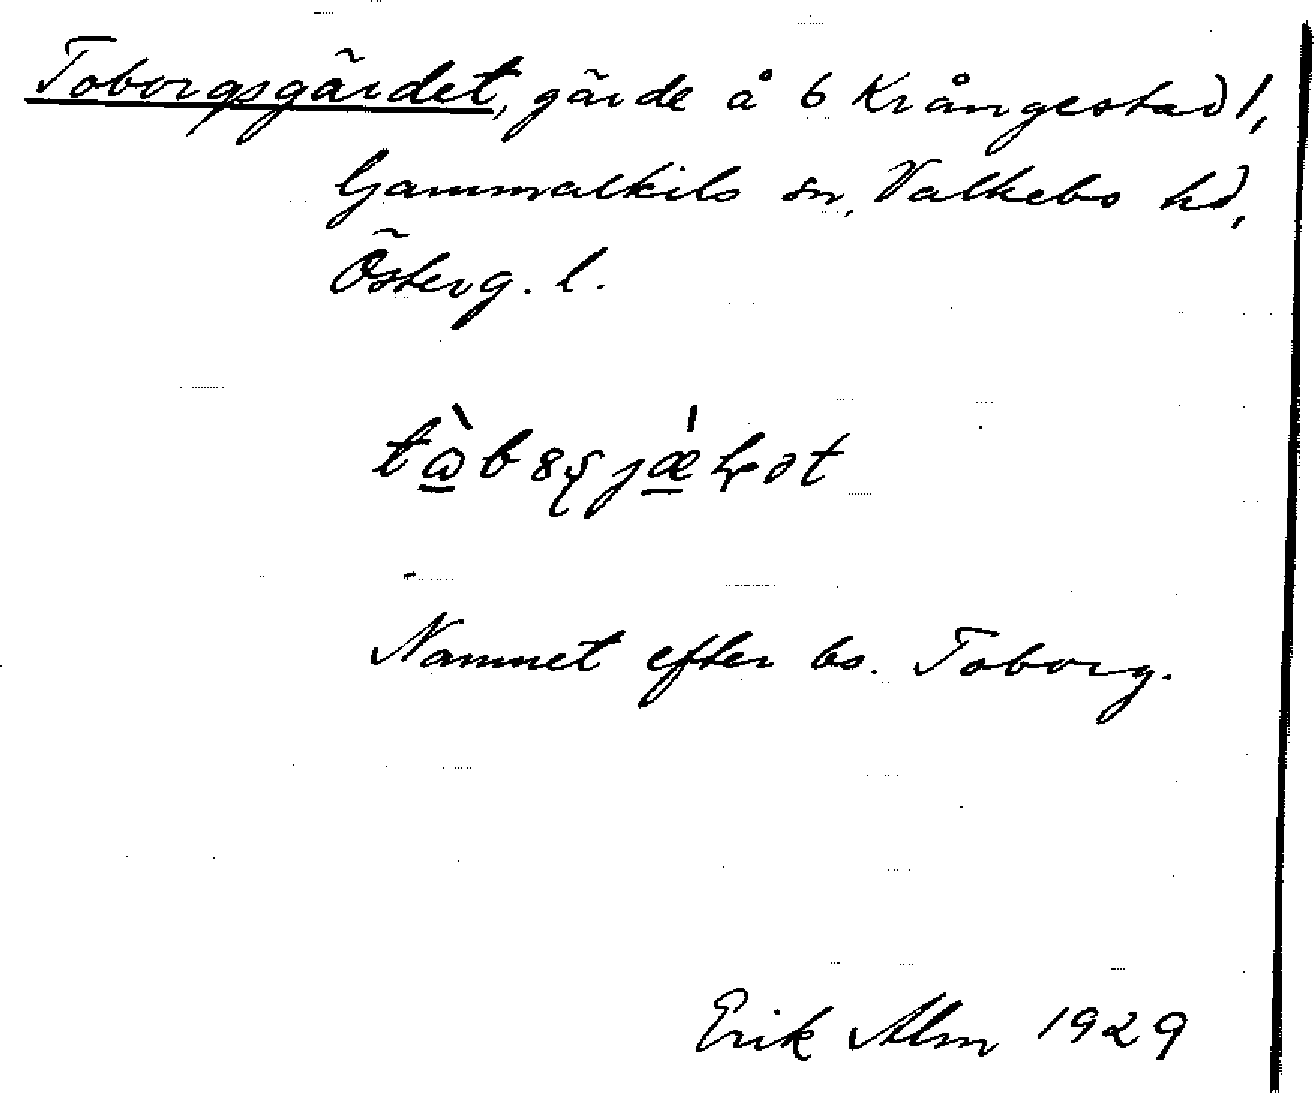 Toborgsgärdet, gärde å 6 Krångestad 1,
Gammalkils sn, Valkebo hd,
Österg. l.
Namnet efter bs. Toborg.
Erik Alm 1929